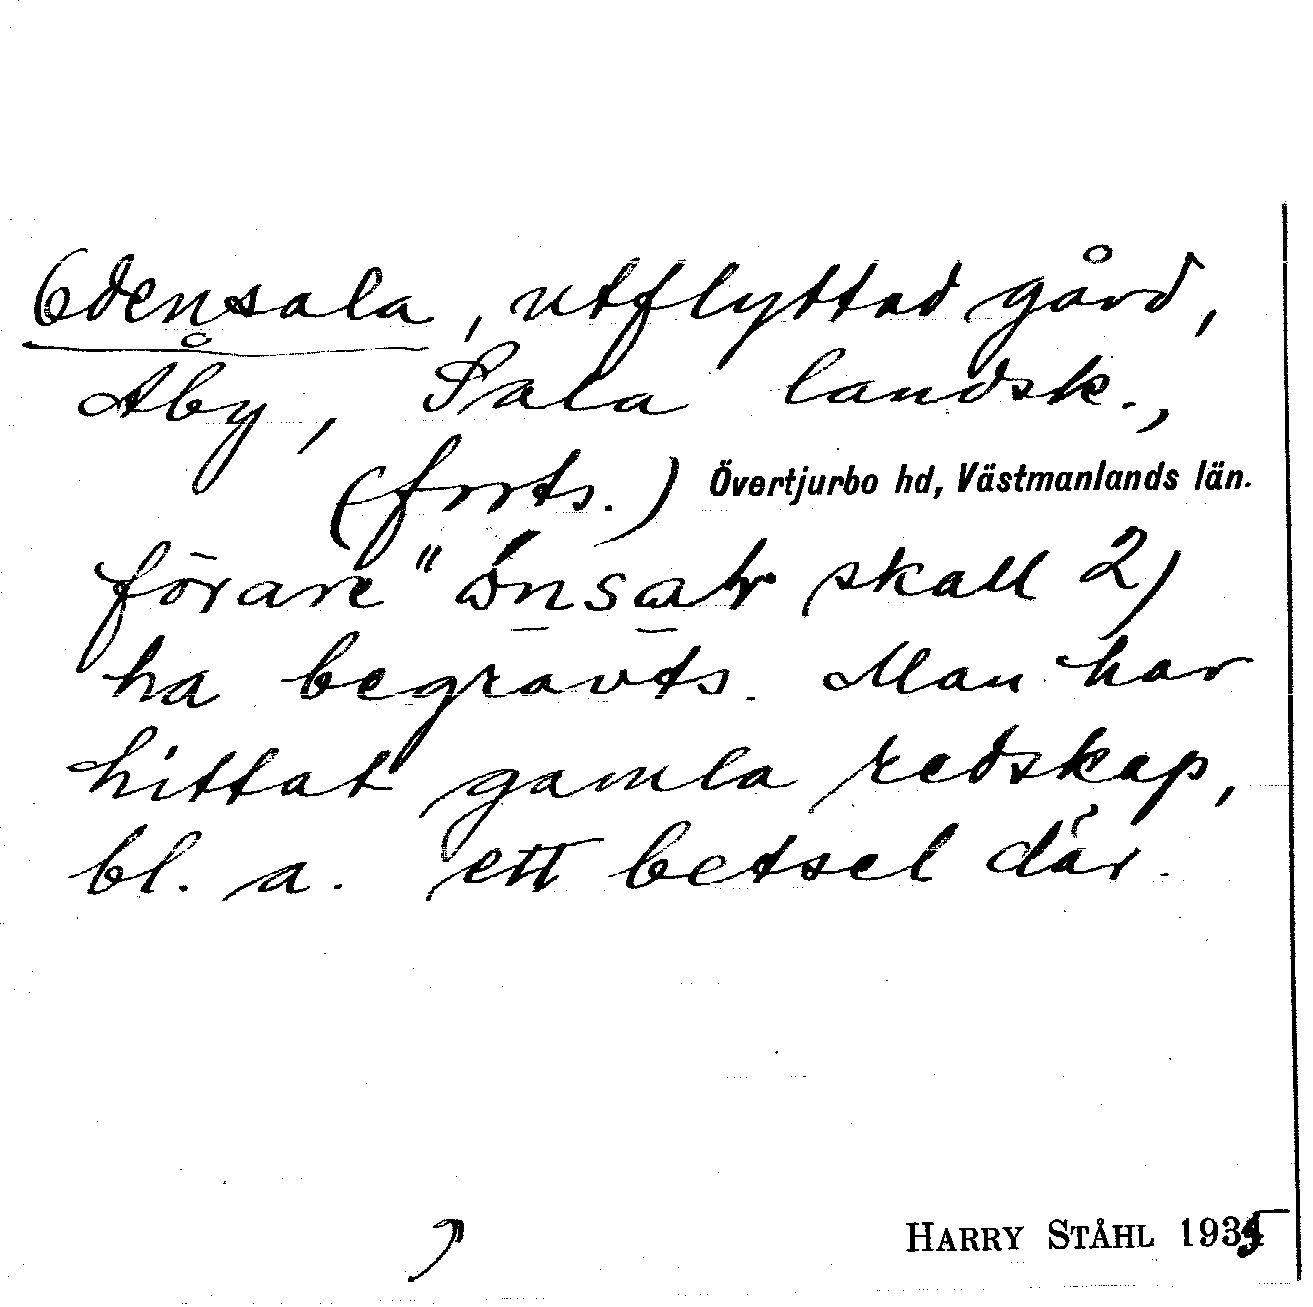 Odensala, utflyttad gård,
Åby, Sala landsk.,
(forts.) Övertjurbo hd, Västmanlands län.
förare" skall 2)
ha begravts. Man har
hittat gamla redskap,
bl. a. ett betsel där.
HARRY STÅHL 1935